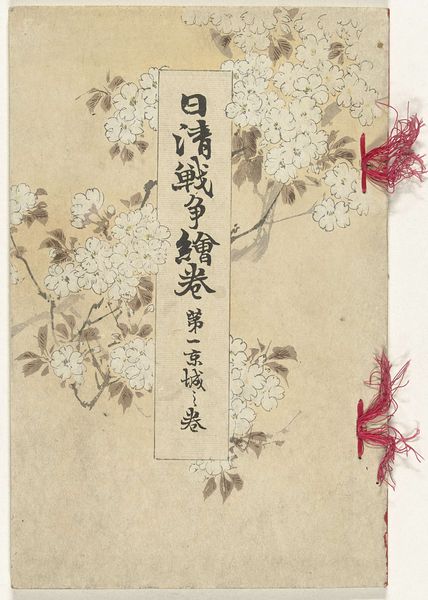 日清戦争繪巻 第一京城之巻